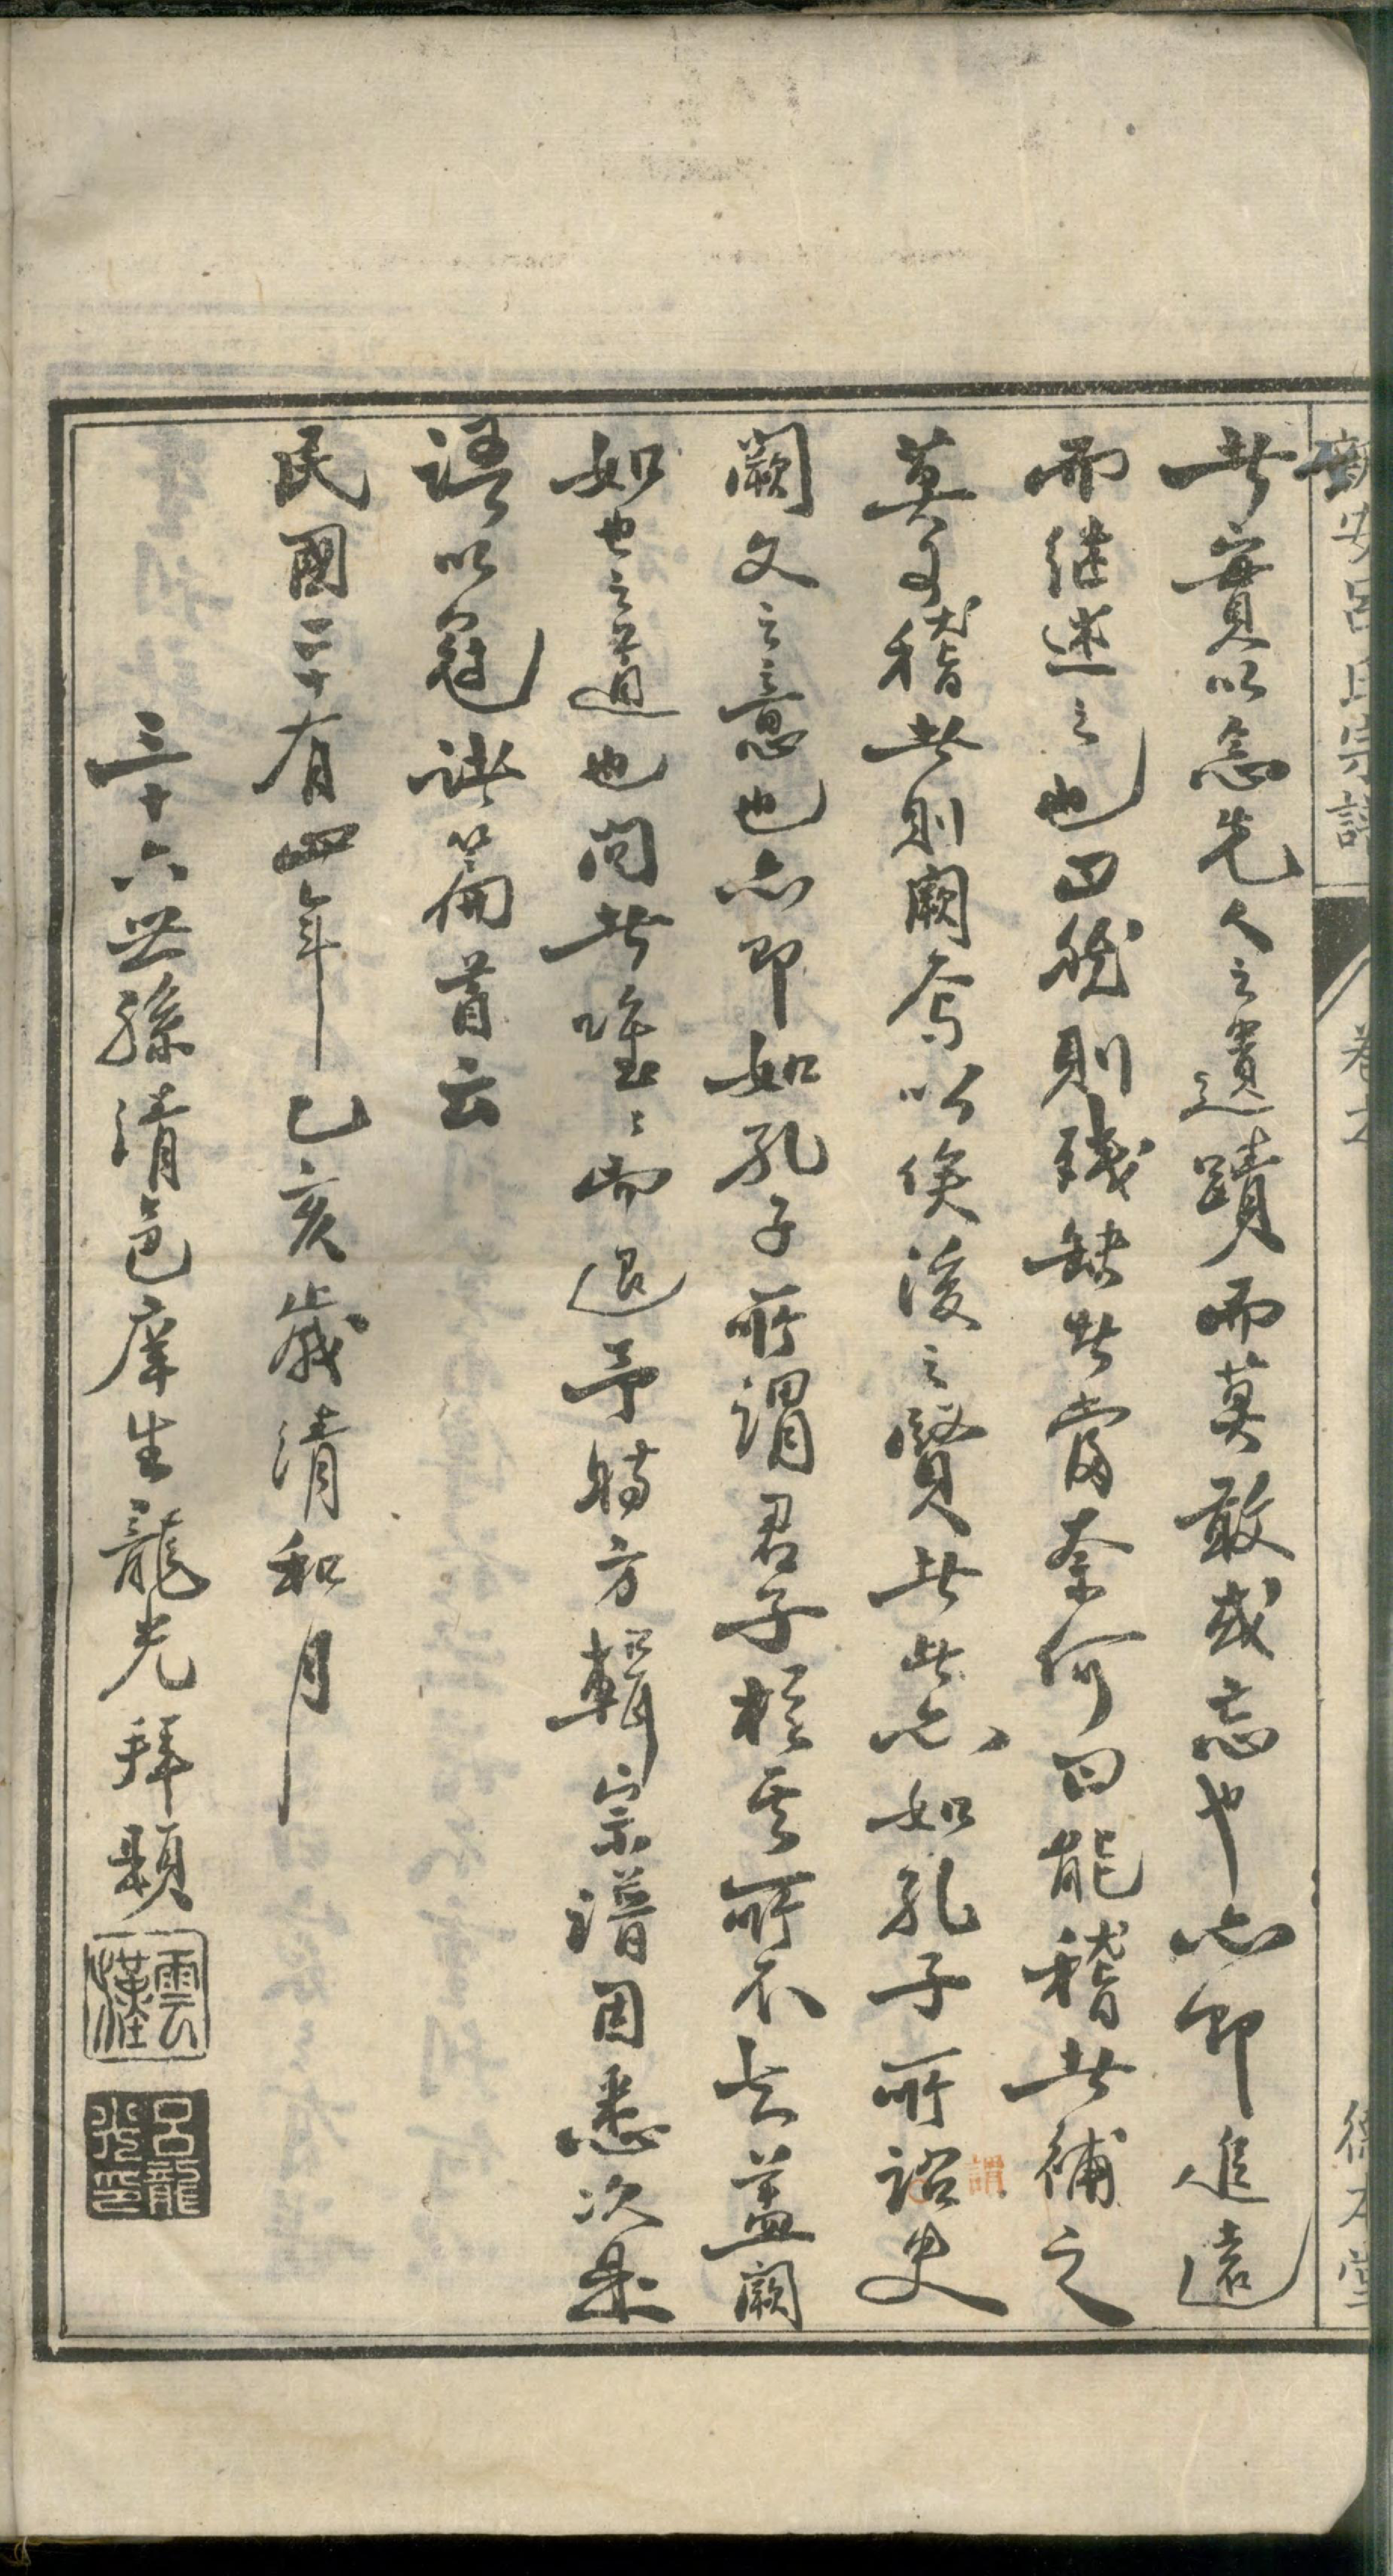 新安呂氏宗譜 卷之 德本堂
者實以念先人之遺蹟而莫敢或忘也亦即追遠
而继述之也曰然則殘缺者當奈何曰能稽者補之
莫可稽者則闕焉以俟後之賢者此亦如孔子所詔史
謂
闕文之意也亦即如孔子所謂君子於其所不知蓋闕
如也之道也問者唯唯而退予時方輯宗譜因悉次是
語以冠譜篇首云
民國二十有四年乙亥歲清和月
三十六世孫清邑庠生龍光拜題
雲漢
呂龍光印